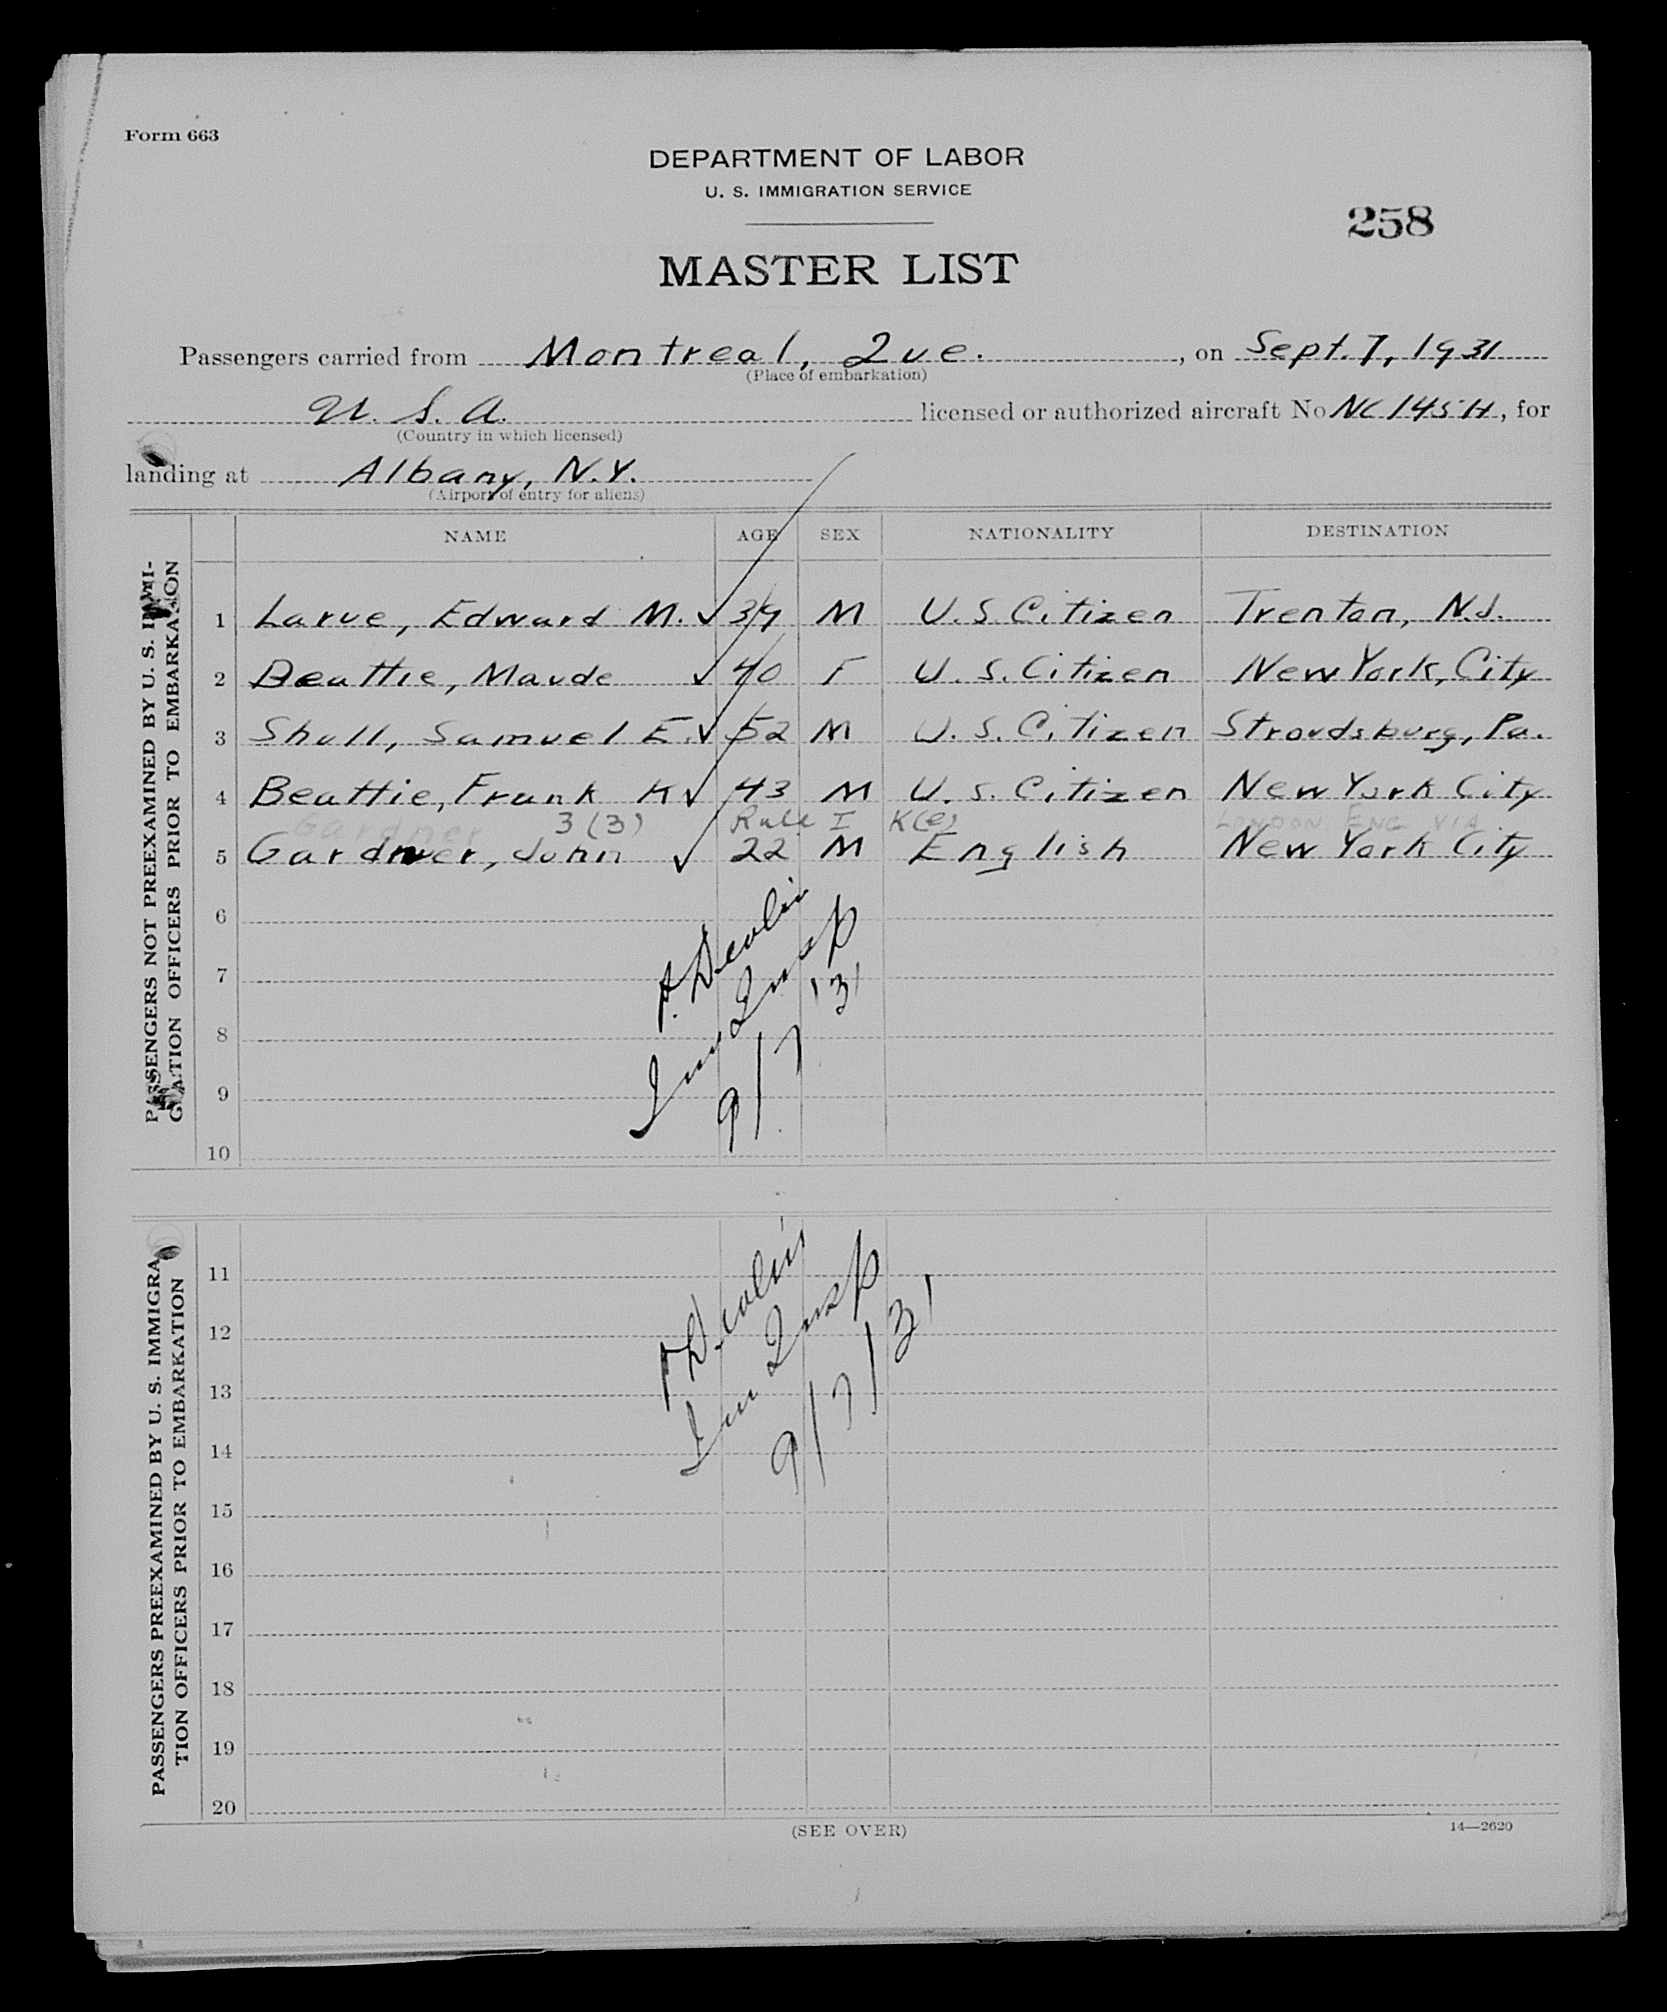 Form 663
DEPARTMENT OF LABOR
U. S. IMMIGRATION SERVICE
258
MASTER LIST
Passengers carried from Montreal, Que. , on Sept. 7, 1931
(Place of embarkation)
U. S. A. licensed or authorized aircraft No NC 145H, for
(Country in which licensed)
landing at Albany, N.Y.
(Airport of entry for aliens)
NAME AGE SEX NATIONALITY DESTINATION
PASSENGERS NOT PREEXAMINED BY U. S. IMMI-
GRATION OFFICERS PRIOR TO EMBARKATION
1 Larue, Edward M. ✓ 39 M U.S. Citizen Trenton, N.J.
2 Beattie, Maude ✓ 40 F U. S. Citizen New York, City
3 Shull, Samuel E. ✓ 52 M U. S. Citizen Stroudsburg, Pa.
4 Beattie, Frank K ✓ 43 M U. S. Citizen New York City
Gardner 3(3) Rule I K(e) LONDON ENG VIA
5 Gardner, John ✓ 22 M English New York City
6
7
8
9
10
P. Devlin
Imm Insp
9/7 '31
PASSENGERS PREEXAMINED BY U. S. IMMIGRA
TION OFFICERS PRIOR TO EMBARKATION
11
12
13
14
15
16
17
18
19
20
P Devlin
Im Insp
9/7/31
(SEE OVER)
14—2620